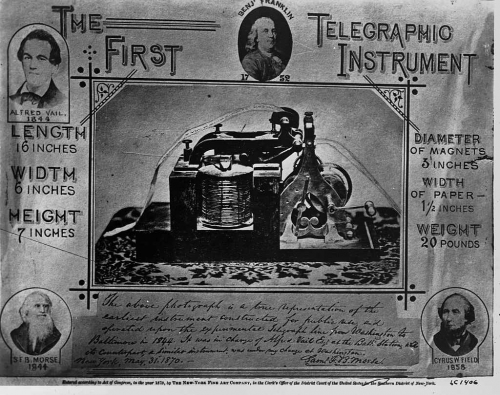 THE FIRST
TELEGRAPHIC INSTRUMENT
BENJ. FRANKLIN
1752
ALFRED VAIL,
1844
LENGTH
16 INCHES
WIDTH
6 INCHES
HEIGHT
7 INCHES
DIAMETER
OF MAGNETS
3 INCHES
WIDTH
OF PAPER-
1 1/2 INCHES
WEIGHT
20 POUNDS
S.F.B. MORSE
1844
CYRUS W. FIELD
1858
The above photograph is a true representation of the
earliest instrument constructed for public use, and
operated upon the experimental Telegraph line from Washington to
Baltimore in 1844. It was in charge of Alfred Vail Esq at the Balt. Station, and
its counterpart, a similar instrument, was under my charge at Washington.
New York, May 31, 1870. Saml. F. B. Morse.
Entered according to Act of Congress, in the year 1870, by THE NEW YORK FINE ART COMPANY, in the Clerk's Office of the District Court of the United States for the Southern District of New-York.
LC1406